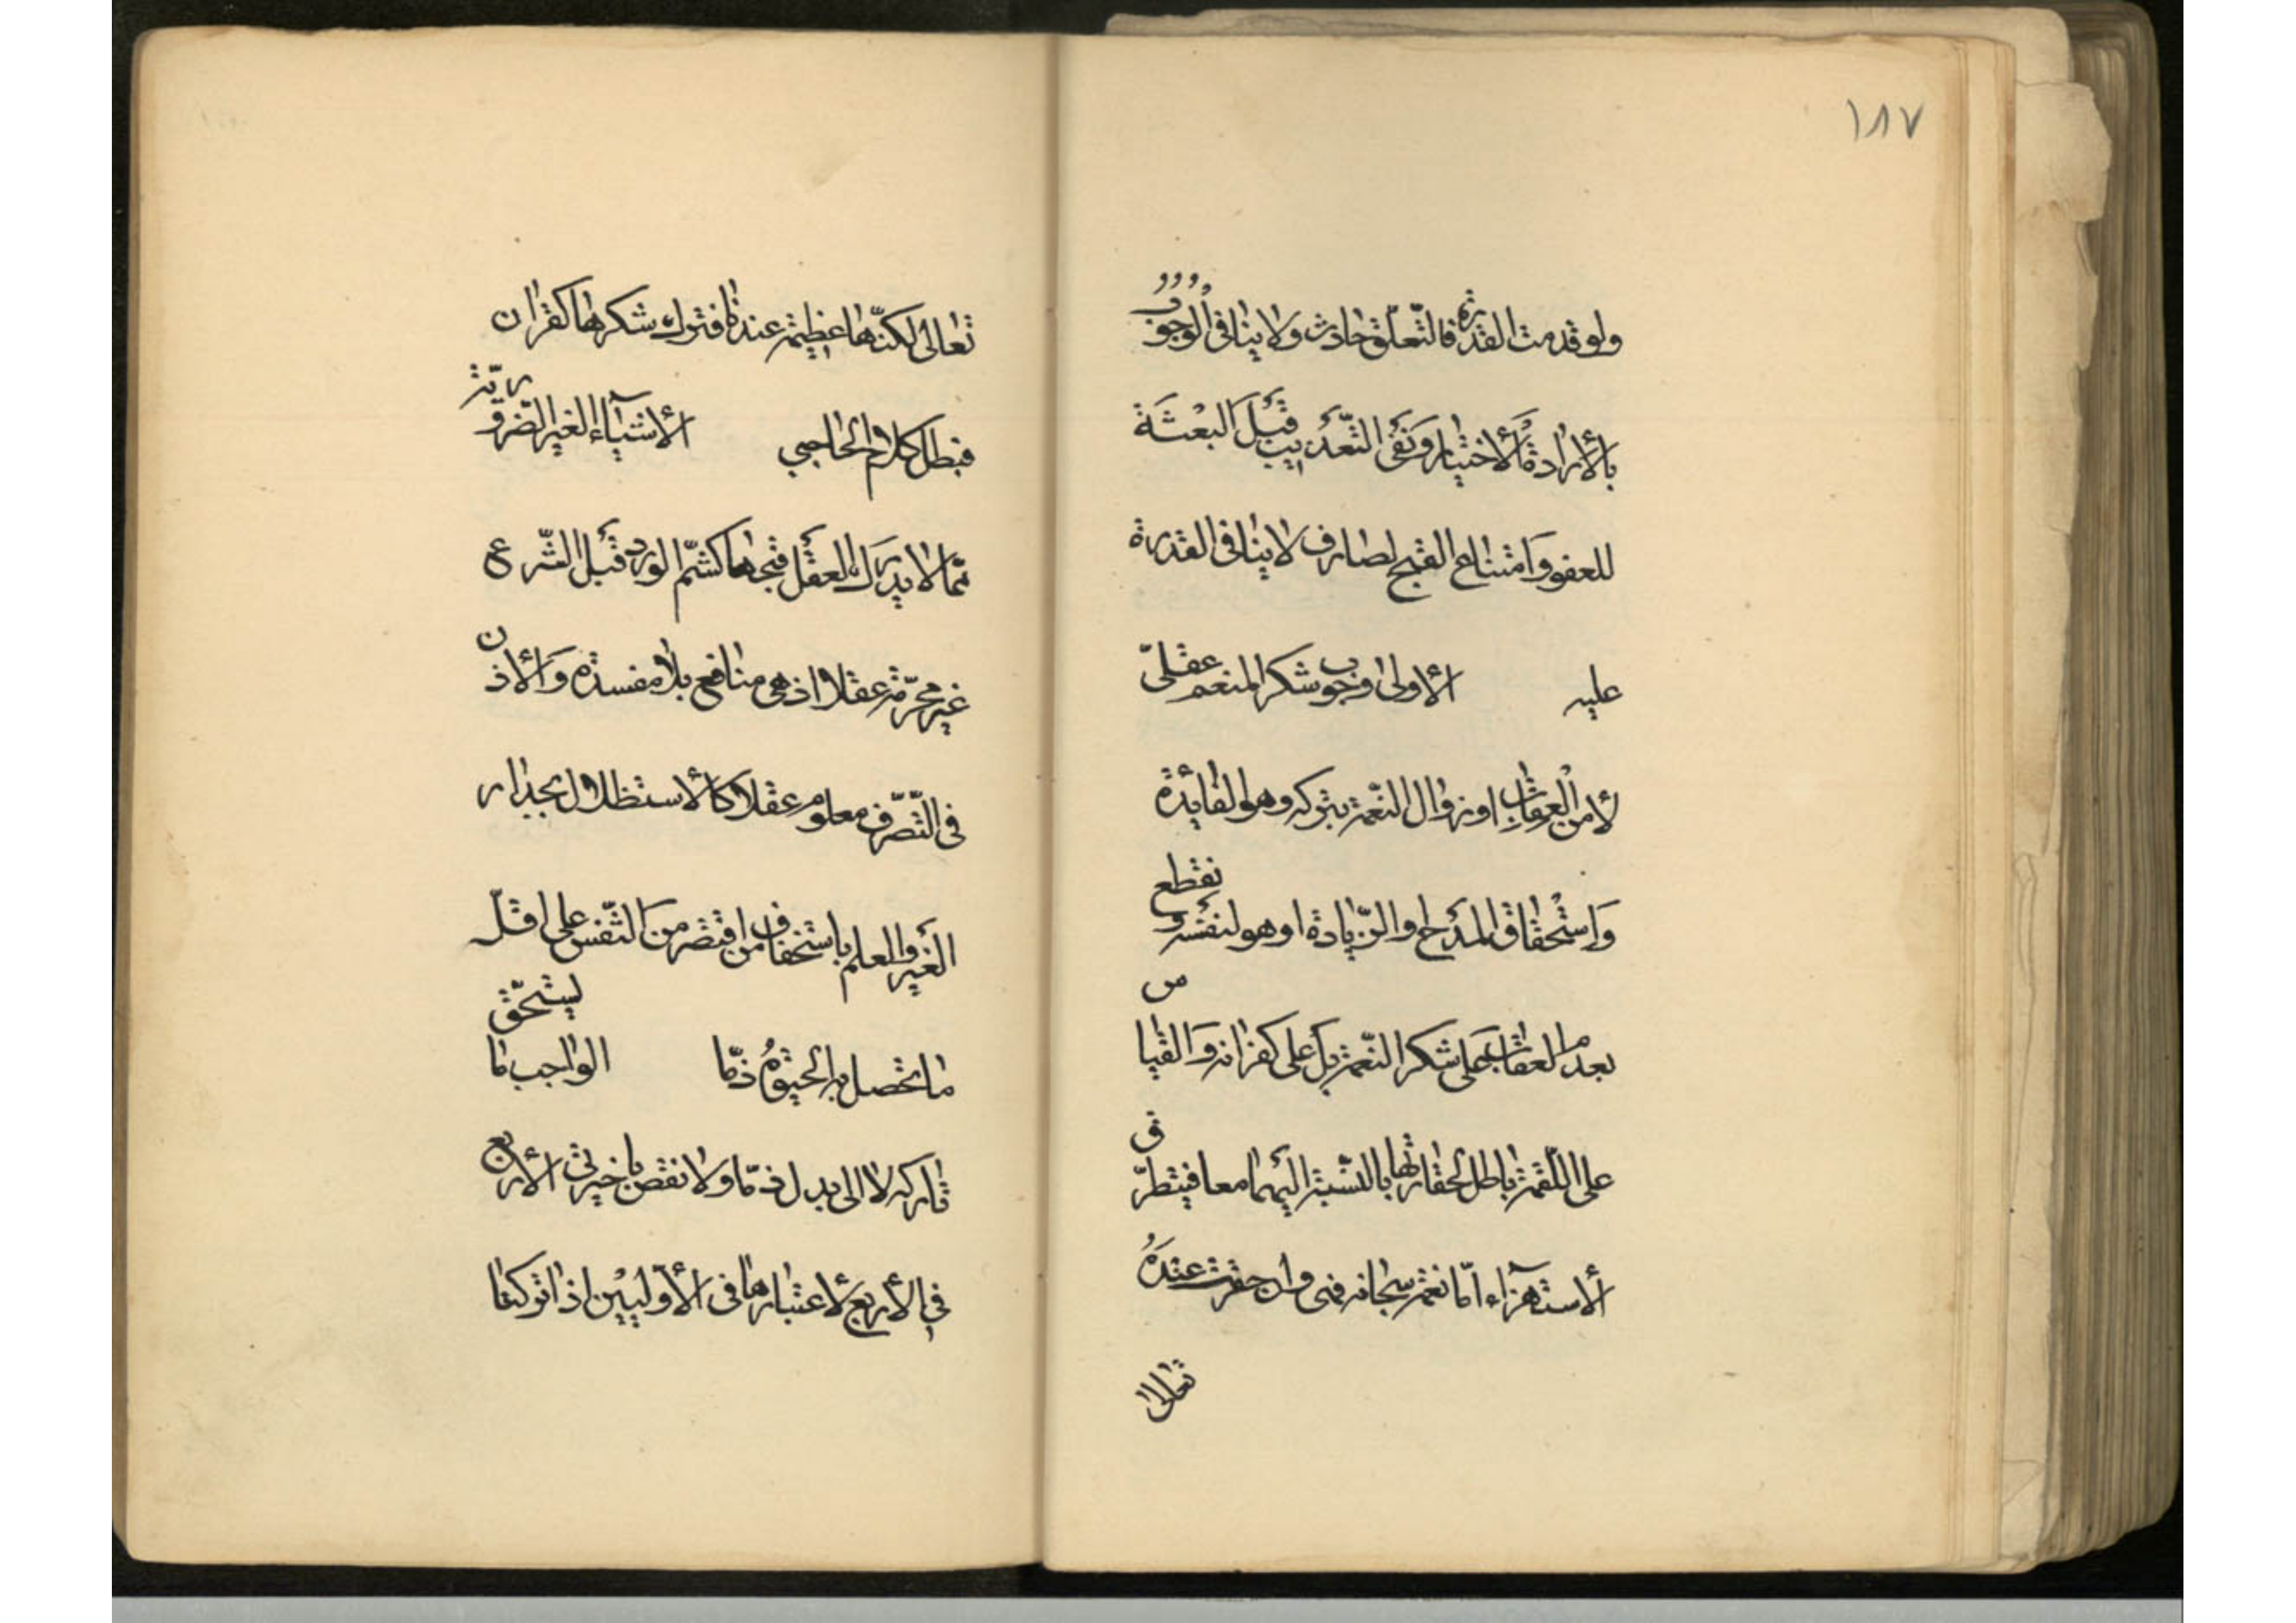 ١٨٧
ولو قدمت القدرة فالتّعلّق حادث ولا ينافى الوجوب
بالأرادة والأختيار ونفى التّعذيب قبل البعثة
للعفو وامتناع القبح لصارف لا ينافى القدرة
عليه الأولى وجوب شكر المنعم عقلىّ
لأمن العقاب او زوال النّعمة بتركه وهو الفايدة
واستحقاق المدح او الزّيادة او هو لنفسه و نقطع
بعدم العقاب على شكر النّعمة بل على كفرانه والقياس
على اللّقمة باطل لحقارتها بالنّسبة اليهما معا فيتطرّق
الأستهزاء امّا نعمه سبحانه فهى وان حقرت عنده
تعالى
تعالى لكنّها عظيمة عندنا فترك شكرها كفران
فبطل كلام الحاجبي الأشيآء الغير الضّروريّة
ممّا لا يدرك العقل قبحها كشمّ الورد قبل الشّرع
غير محرّمة عقلا اذ هى منافع بلا مفسدة والأذن
فى التّصرّف معلوم عقلا كالأستظلال بجدار
الغير والعلم باستخفاف من اقتصر من التّنفس على اقلّ
ما تحصل به الحيوة ذمّا الواجب ما يستحقّ
تاركه لا الى بدل ذمّا ولا نقض باخيرتى الأربع
فى الأربع لأعتبارها فى الأوّليين اذا تركتا